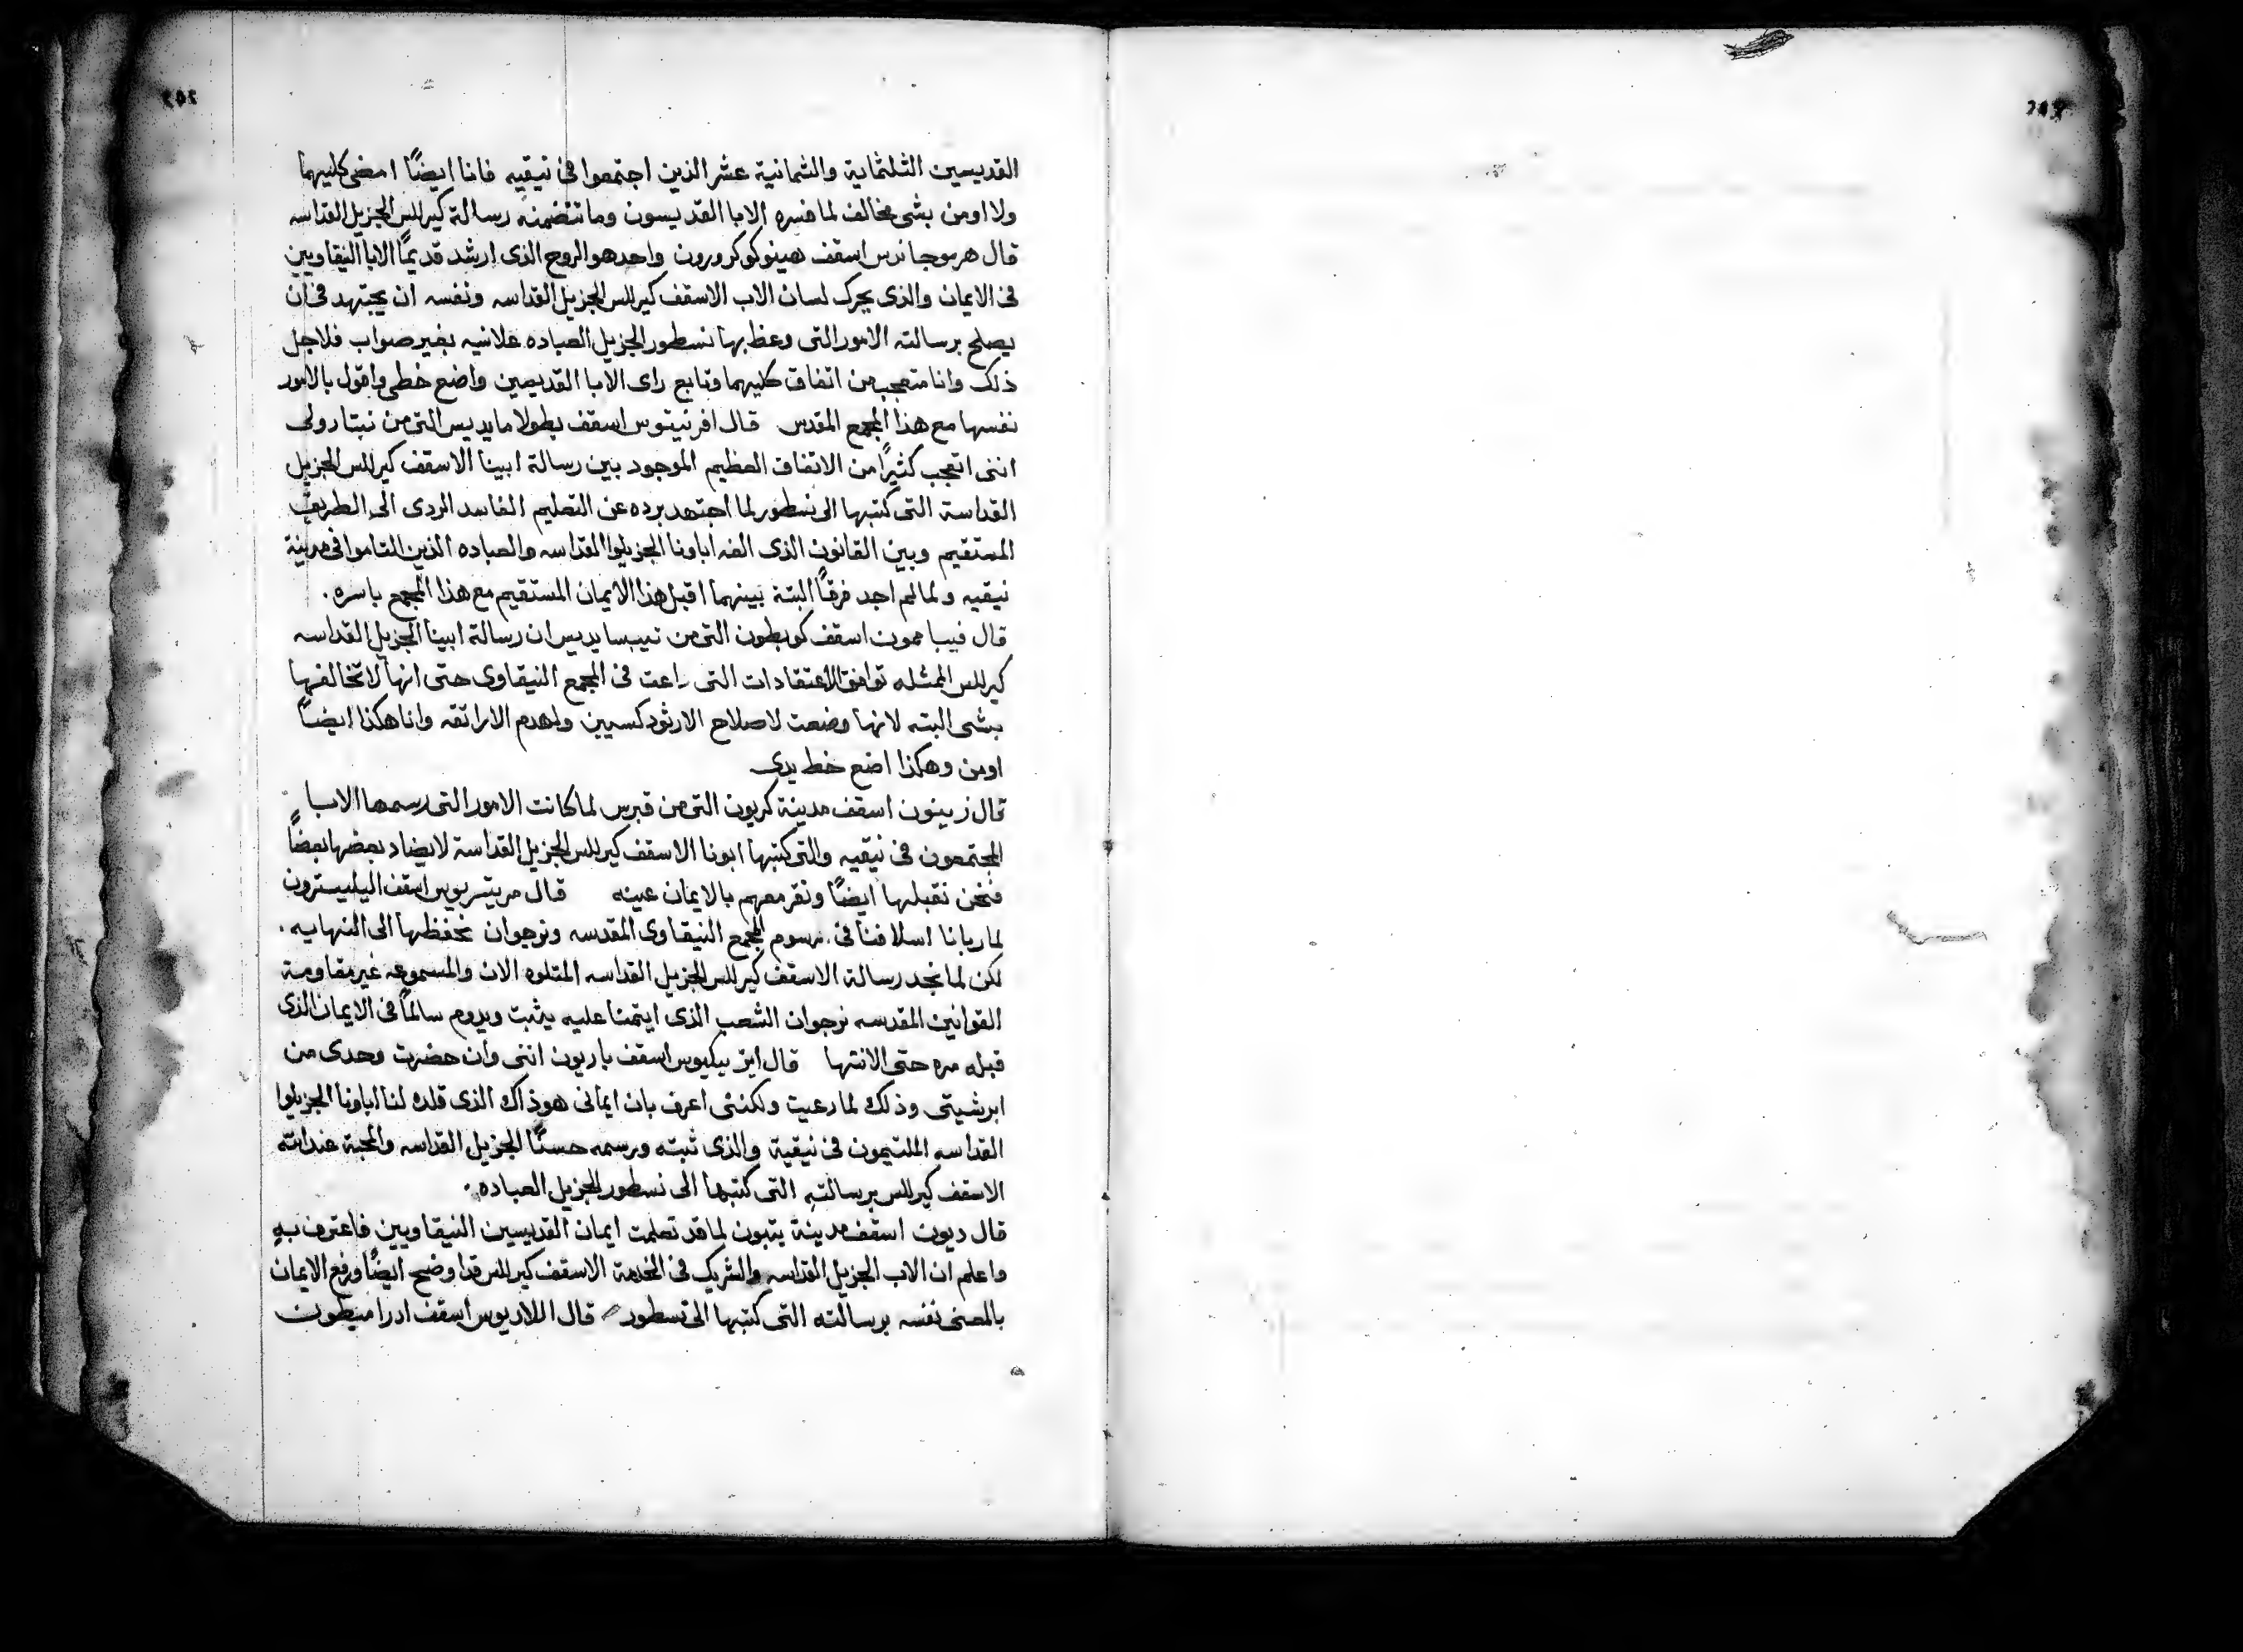 القديسين الثلثماية والثمانية عشر الذين اجتمعوا في نيقيه فانا ايضًا امضي كليهما
ولا اومن بشي مخالف لما فسره الابا القديسون وما تتضمنه رسالة كيرللس الجزيل القداسه
قال هرموجانس اسقف هينوكوكرورون واحد هو الروح الذى ارشد قديمًا الابا النيقاويين
في الايمان والذى يحرك لسان الاب الاسقف كيرللس الجزيل القداسه ونفسه ان يجتهد في ان
يصلح برسالته الامور التى وعظ بها نسطور الجزيل العباده علانيه بغير صواب فلاجل
ذلك وانا متعجب من اتفاق كليهما وتابع راى الابا القديسين واضع خطى واقول بالامور
نفسها مع هذا المجمع المقدس قال افرنيتوس اسقف بطولامايديس التى من نبتارولى
اننى اتعجب كثيرًا من الاتفاق العظيم الموجود بين رسالة ابينا الاسقف كيرللس الجزيل
القداسة التى كتبها الى نسطور لما اجتهد برده عن التعليم الفاسد الردى الى الطريق
المستقيم وبين القانون الذى الفه اباونا الجزيلوا القداسه والعباده الذين التاموا في مدينة
نيقيه ولما لم اجد فرقًا البتة بينهما اقبل هذا الايمان المستقيم مع هذا المجمع باسره.
قال فيبامون اسقف كوبطون التى من تيبسايديس ان رسالة ابينا الجزيل القداسه
كيرللس الممثله توافق الاعتقادات التى راعت في المجمع النيقاوى حتى انها لا تخالفها
بشى البته لانها وضعت لاصلاح الارثودكسيين ولهدم الاراتقه وانا هكذا ايضًا
اومن وهكذا اضع خط يدى
قال زينون اسقف مدينة كريون التى من قبرس لما كانت الامور التى رسمها الابا
المجتمعون في نيقيه والتى كتبها ابونا الاسقف كيرللس الجزيل القداسة لا يضاد بعضها بعضًا
فنحن نقبلها ايضًا ونقر معهم بالايمان عينه قال اسقف اليليسترون
لما ربانا اسلافنا في رسوم المجمع النيقاوى المقدسه ونرجوا ان نحفظها الى النهايه.
لكن لما نجد رسالة الاسقف كيرللس الجزيل القداسه المتلوه الان والمسموعه غير مقاومة
القوانين المقدسه نرجوا ان الشعب الذى ايتمنا عليه يثبت ويدوم سالمًا في الايمان الذى
قبله مره حتى الانتها قال اسقف باريون اننى وان حضرت وحدى من
ابرشيتى وذلك لما دعيت ولكننى اعرف بان ايمانى هو ذاك الذى قلده لنا اباونا الجزيلوا
القداسه الملتيمون في نيقية والذى ثبته ورسمه حسنًا الجزيل القداسه والمحبة عند الله
الاسقف كيرللس برسالته التى كتبها الى نسطور الجزيل العباده.
قال ديون اسقف مدينة يتبون لما قد تعلمت ايمان القديسين النيقاويين فاعترف به
واعلم ان الاب الجزيل القداسه والشريك في الخدمة الاسقف كيرللس قد اوضح ايضًا ورفع الايمان
بالمعنى نفسه برسالته التى كتبها الى نسطور قال اللاديوس اسقف ادراميطون